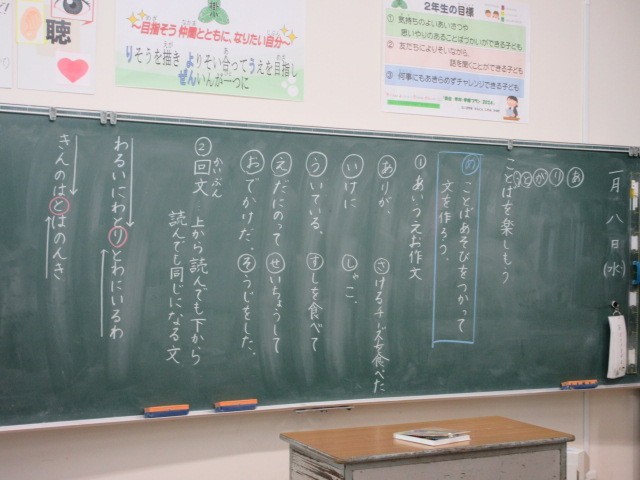 聴
～目指そう 仲間とともに、なりたい自分～
りそうを描き よりそい合ってうえを目指し
ぜんいんが一つに
2年生の目標
① 気持ちのよいあいさつや
思いやりのあることばづかいができる子ども
② 友だちによりそいながら、
話を聞くことができる子ども
③ 何事にもあきらめずチャレンジできる子ども
一月八日(水)
ことばを楽しもう
め ことばあそびをつかって
文を作ろう。
① あいうえお作文
ありが、 さけるチーズを食べた
いけに しゃこ、
ういている。 すしを食べて
えだにのって せいちょうして
おでかけた。 そうじをした。
② 回文…上から読んでも下から
かいぶん
読んでも同じになる文
わるいにわとりとわにいるわ
きんのはとはのんき